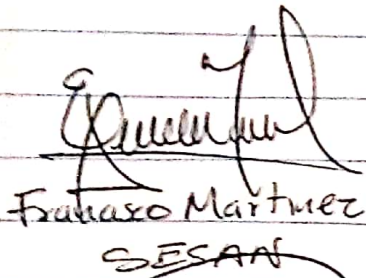 Francisco Martinez
SESAN